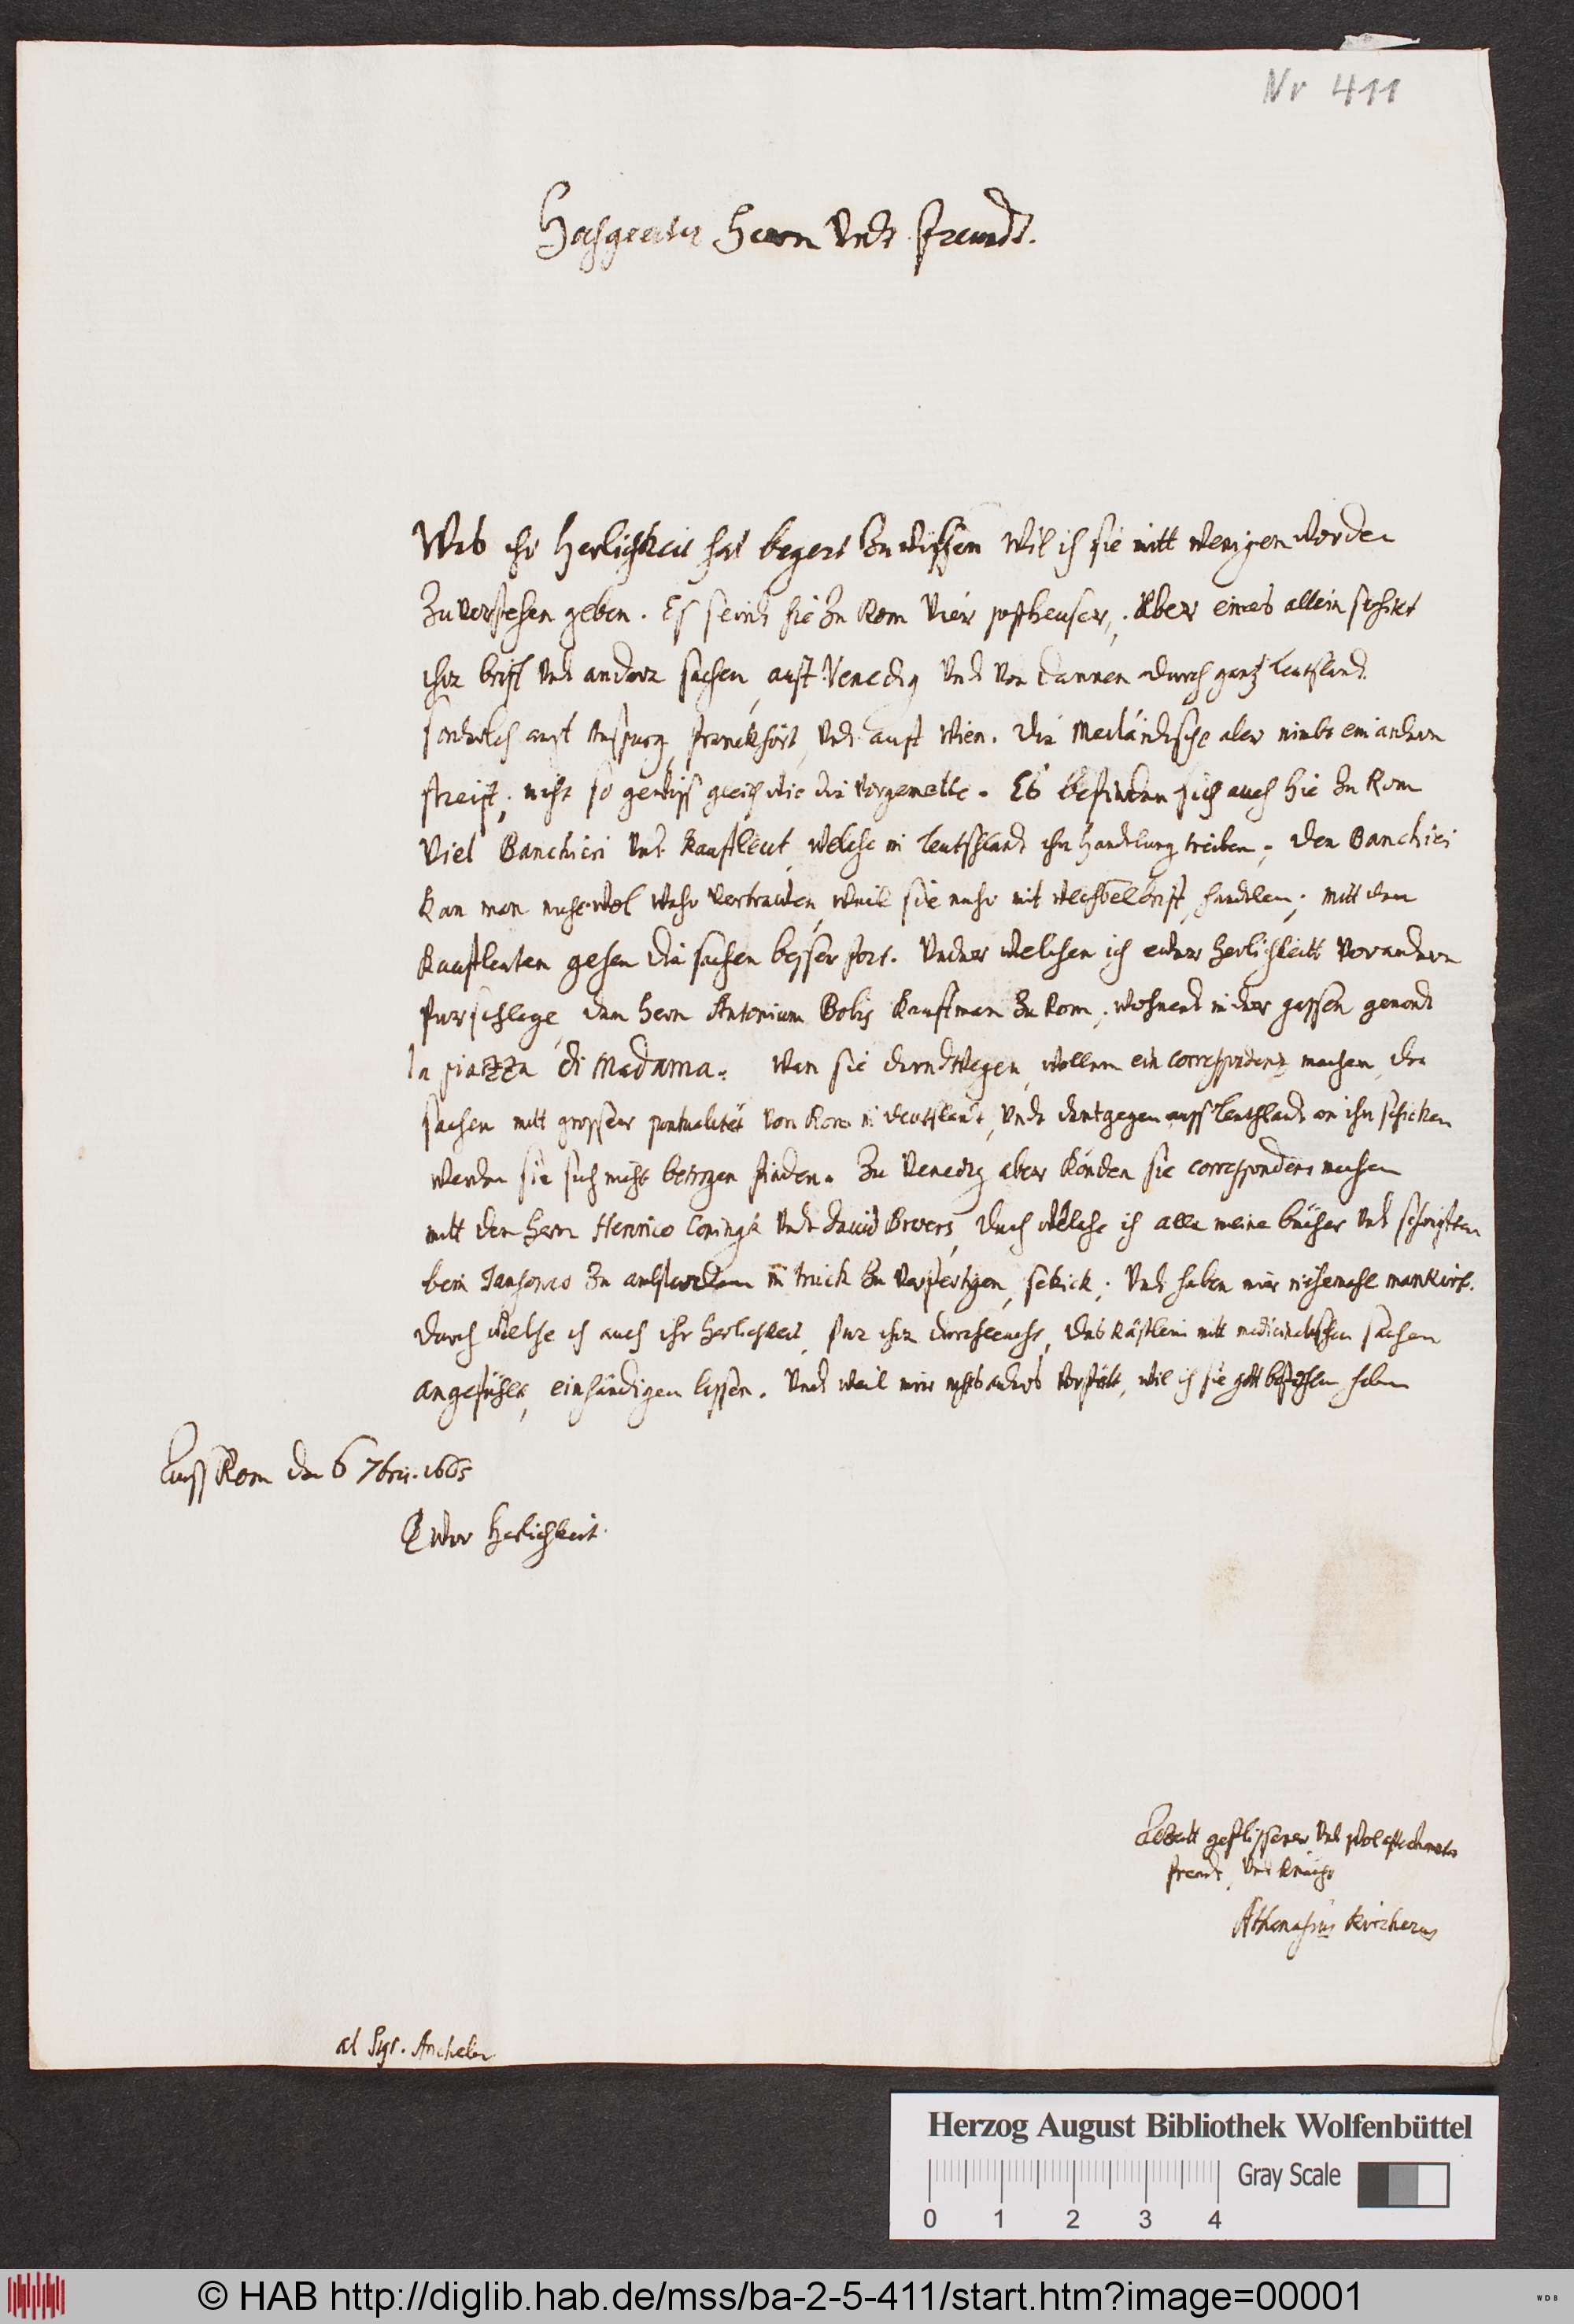 Nr 411
Hochgeerter Herr Undt freundt.
Was ihr Herlichkeit hat begert Zu wissen wil ich sie mitt wenigen worden
Zu verstehen geben. Es seindt hie Zu Rom Vier postheuser, aber eines allein schikt
ihre brief Undt andere sachen, auff Venedig Undt von dannen durch gantz teutschland
sonderlich auff Auspurg, franckfort, Undt auff Wien. die Meiländische aber nimbt ein andern
streiff, nicht so gewiss gleich wie die vorgemelte. Es befinden sich auch hie Zu Rom
Viel Banchieri Undt Kauffleut, welche in teutschland ihr handlung treiben, den Banchieri
Kan man nicht wol vertrauwen, weil sie mit wechselbrief handlen; mitt den
Kauffleuten gehen die sachen besser fort. Under welchen ich euwer herlichkeitt vor andern
furschlage, den hern Antonium Bolis Kauffman Zu Rom, wohnend in der gassen genandt
la piazza di Madama. Wan sie derentwegen, wollen ein correspondenz machen, die
sachen mitt grosser puntualitet von Rom in deutschlandt, Undt entgegen auss teutschlandt an ihn schicken
werden sie sich nicht betrogen finden. Zu Venedig aber könden sie correspondenz machen
mitt den hern Henrico Coninga Undt David Brvers, durch welche ich alle meine bücher Undt schrifften
beim Jansonio Zu ambsterdam in truck Zu verfertigen, schick; Undt haben mir niehemahl mankirt.
durch welche ich auch ihr herlichkeit, fur ihre, das kästlein mitt medicinalischen sachen
angefühlt, einhändigen lassen. Undt weil mir nichts anders vorfält, wil ich sie gott befohlen haben
Auss Rom den 6 7bris. 1665
Euwer Herlichkeit
geflissener Undt
freundt, Undt knecht
Athanasius Kircherus
al Sigr. Anckelm
Herzog August Bibliothek Wolfenbüttel
Gray Scale
0 1 2 3 4
© HAB http://diglib.hab.de/mss/ba-2-5-411/start.htm?image=00001
WDB